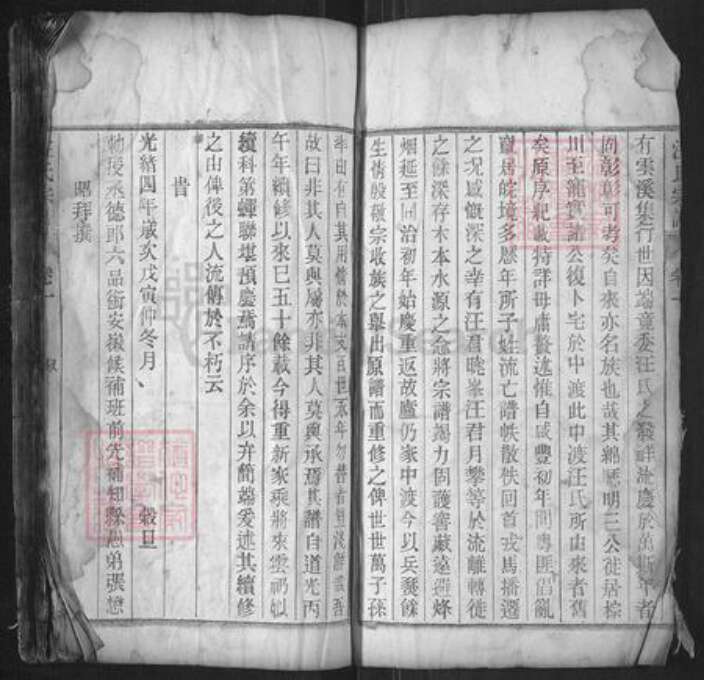 有雲溪集行世因端竟委汪氏之發祥流慶於黃斯年者
固彰彰可考矣自來亦名族也哉其綿歷明三公徙居棕
川至龍寶諸公復卜宅於中渡此中渡汪氏所由來者舊
矣原序紀載特詳毋庸贅述惟自咸豐初年間粵匪倡亂
竄居皖境多歷年所子姓流亡譜帙散佚回首戎馬播遷
之况感慨深之幸有汪君曉峯汪君月攀等於流離轉徙
之餘深存木本水源之念將宗譜竭力固護窖藏遠避烽
烟延至同治初年始慶重返故廬仍家中渡今以兵燹餘
生情殷敬宗收族之舉出原譜而重修之俾世世萬子孫
率由有自其用情於本支百世
故曰非其人莫與屬亦非其人莫與承焉其譜自道光丙
午年續修以來已五十餘載今得重新家乘將來雲礽似
續科第蟬聯堪預慶焉請序於余以弁簡端爰述其續修
之由俾後之人流傳於不朽云
旹
光緒四年歲次戊寅仲冬月 穀旦
勅授承德郎六品銜安徽候補班前先補知縣愚弟張懋
昭拜撰
汪氏宗譜 卷十